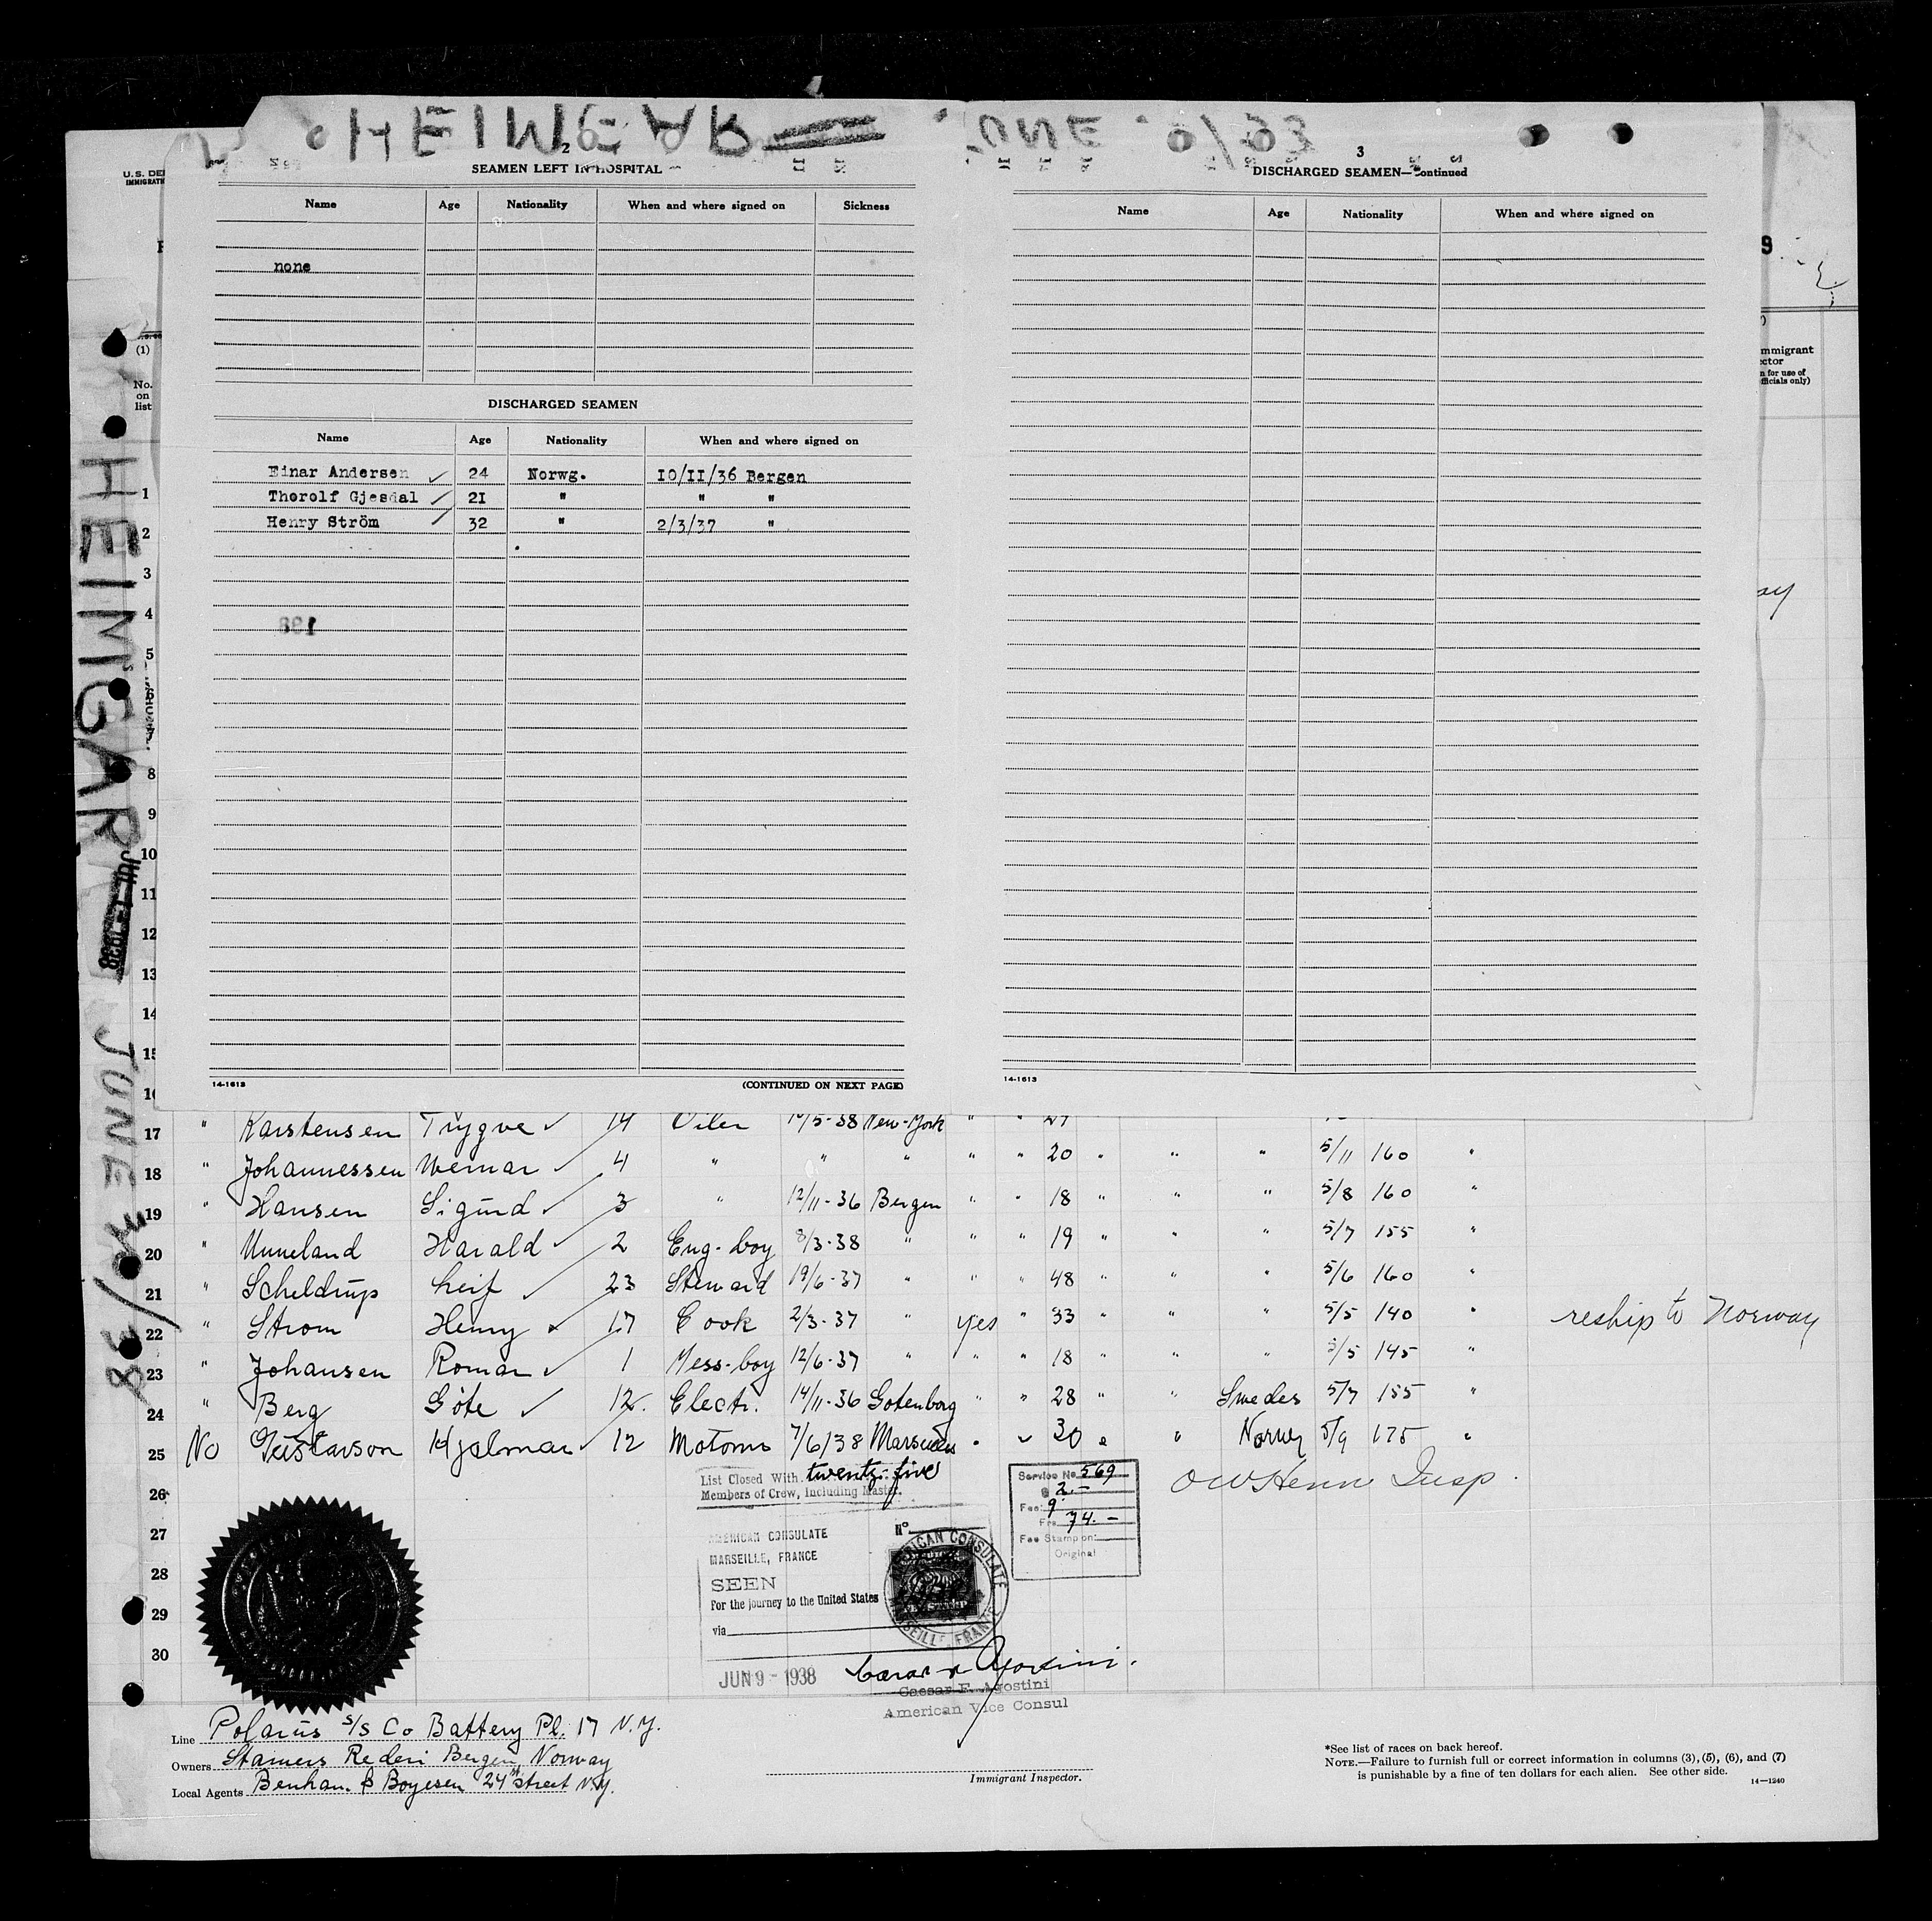 HEIMGAR JUNE
2
SEAMEN LEFT IN HOSPITAL
Name Age Nationality When and where signed on Sickness
none
DISCHARGED SEAMEN
Name Age Nationality When and where signed on
Einar Andersen ✓ 24 Norwg. 10/11/36 Bergen
Thorolf Gjesdal ✓ 21 " " "
Henry Ström ✓ 32 " 2/3/37 "
(CONTINUED ON NEXT PAGE)
14-1613
3
DISCHARGED SEAMEN—Continued
Name Age Nationality When and where signed on
14-1613
U.S. DE
IMMIGRAT
9
(1)
No.
on
list
mmigrant
ctor
n for use of
fficials only)
HEIMGAR JUNE /38
1
2
3
4
5
8
9
10
11
12
13
14
15
16
17 " Karstensen Trygve ✓ 14 Oiler /5-38 New-York " "
18 " Johannessen Werner ✓ 4 " " " " " 20 " " " 5/11 160 "
19 " Hansen Sigurd ✓ 3 " 12/11-36 Bergen " " 18 " " " 5/8 160 "
20 " Unneland Harald ✓ 2 Eng-boy 8/3-38 " " " 19 " " " 5/7 155 "
21 " Scheldrup Leif ✓ 23 Steward 19/6-37 " " " 48 " " " 5/6 160 "
22 " Strom Henry ✓ 17 Cook 2/3-37 " yes " 33 " " " 5/5 140 " reship to Norway
23 " Johansen Roman ✓ 1 Mess-boy 12/6-37 " " " 18 " " " /5 145 "
24 " Berg Göte ✓ 12 Electr. 14/11-36 Gotenborg " " 28 " " Swedes 5/7 155 "
25 No Gustavson Hjalmar ✓ 12 Motorm 7/6/38 Marseilles " " 30 " " Norw 5/9 175 "
26
27
28
29
30
List Closed With twenty-five
Members of Crew, Including Master.
Service No 569
2.-
Fee: 9
Frs 74.-
Fee Stamp on:
Original
OW Henn Insp.
AMERICAN CONSULATE
MARSEILLE, FRANCE
No
SEEN
For the journey to the United States
via
AMERICAN CONSULATE
MARSEILLE, FRANCE
JUN 9 - 1938
Caesar F. Agostini
American Vice Consul
Line Polarius S/S Co Battery Pl. 17 N.Y.
Owners Stamers Rederi Bergen, Norway
Local Agents Benham & Boyesen 24th Street N.Y.
Immigrant Inspector.
*See list of races on back hereof.
NOTE.—Failure to furnish full or correct information in columns (3), (5), (6), and (7)
is punishable by a fine of ten dollars for each alien. See other side.
14—1240